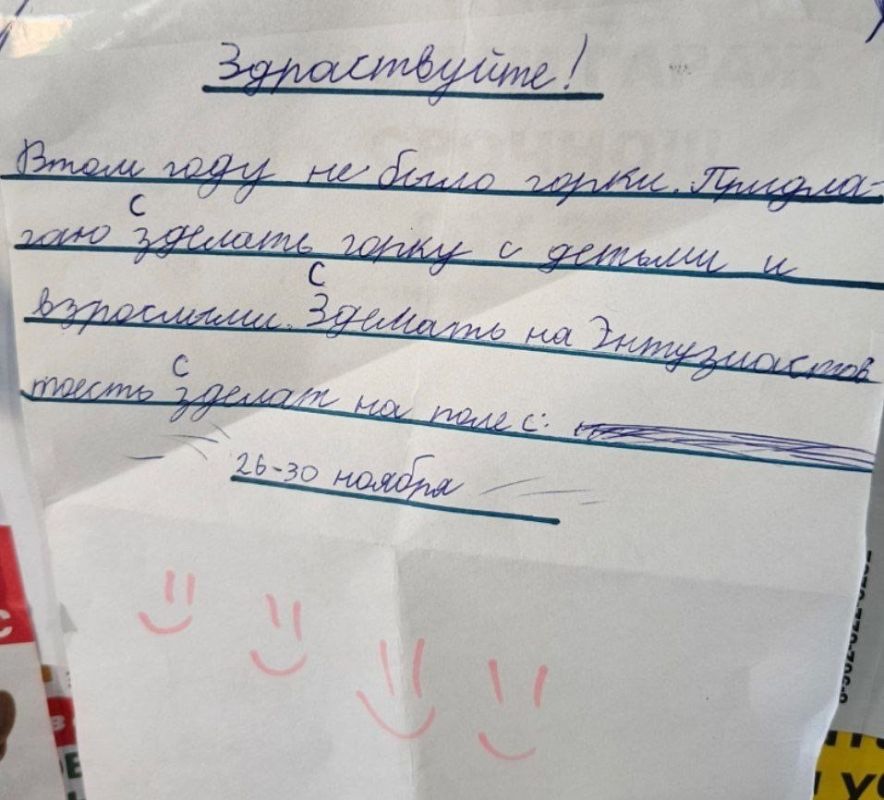 Здраствуйте!
Втом году не было горки. Придла-
гаю зделать горку с детьми и
с
взрослыми. Зделать на Энтузиастов
с
тоесть зделат на поле с:
с
26-30 ноября